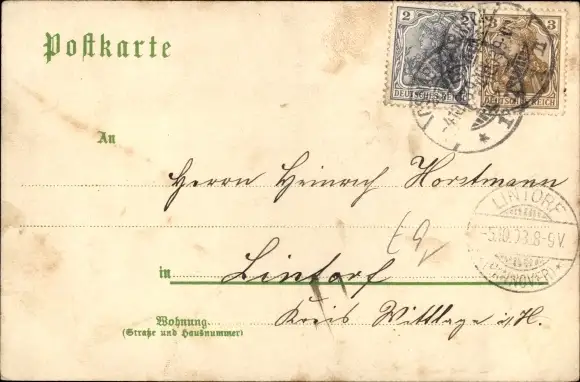 Postkarte
2 2 3
DEUTSCHES REICH
An
Herrn Heinrich Horstmann
LINTORF
-5.10.03.8-9V.
(HANNOVER)
in Lintorf
Wohnung
(Straße und Hausnummer)
Kreis Wittlage i/H.